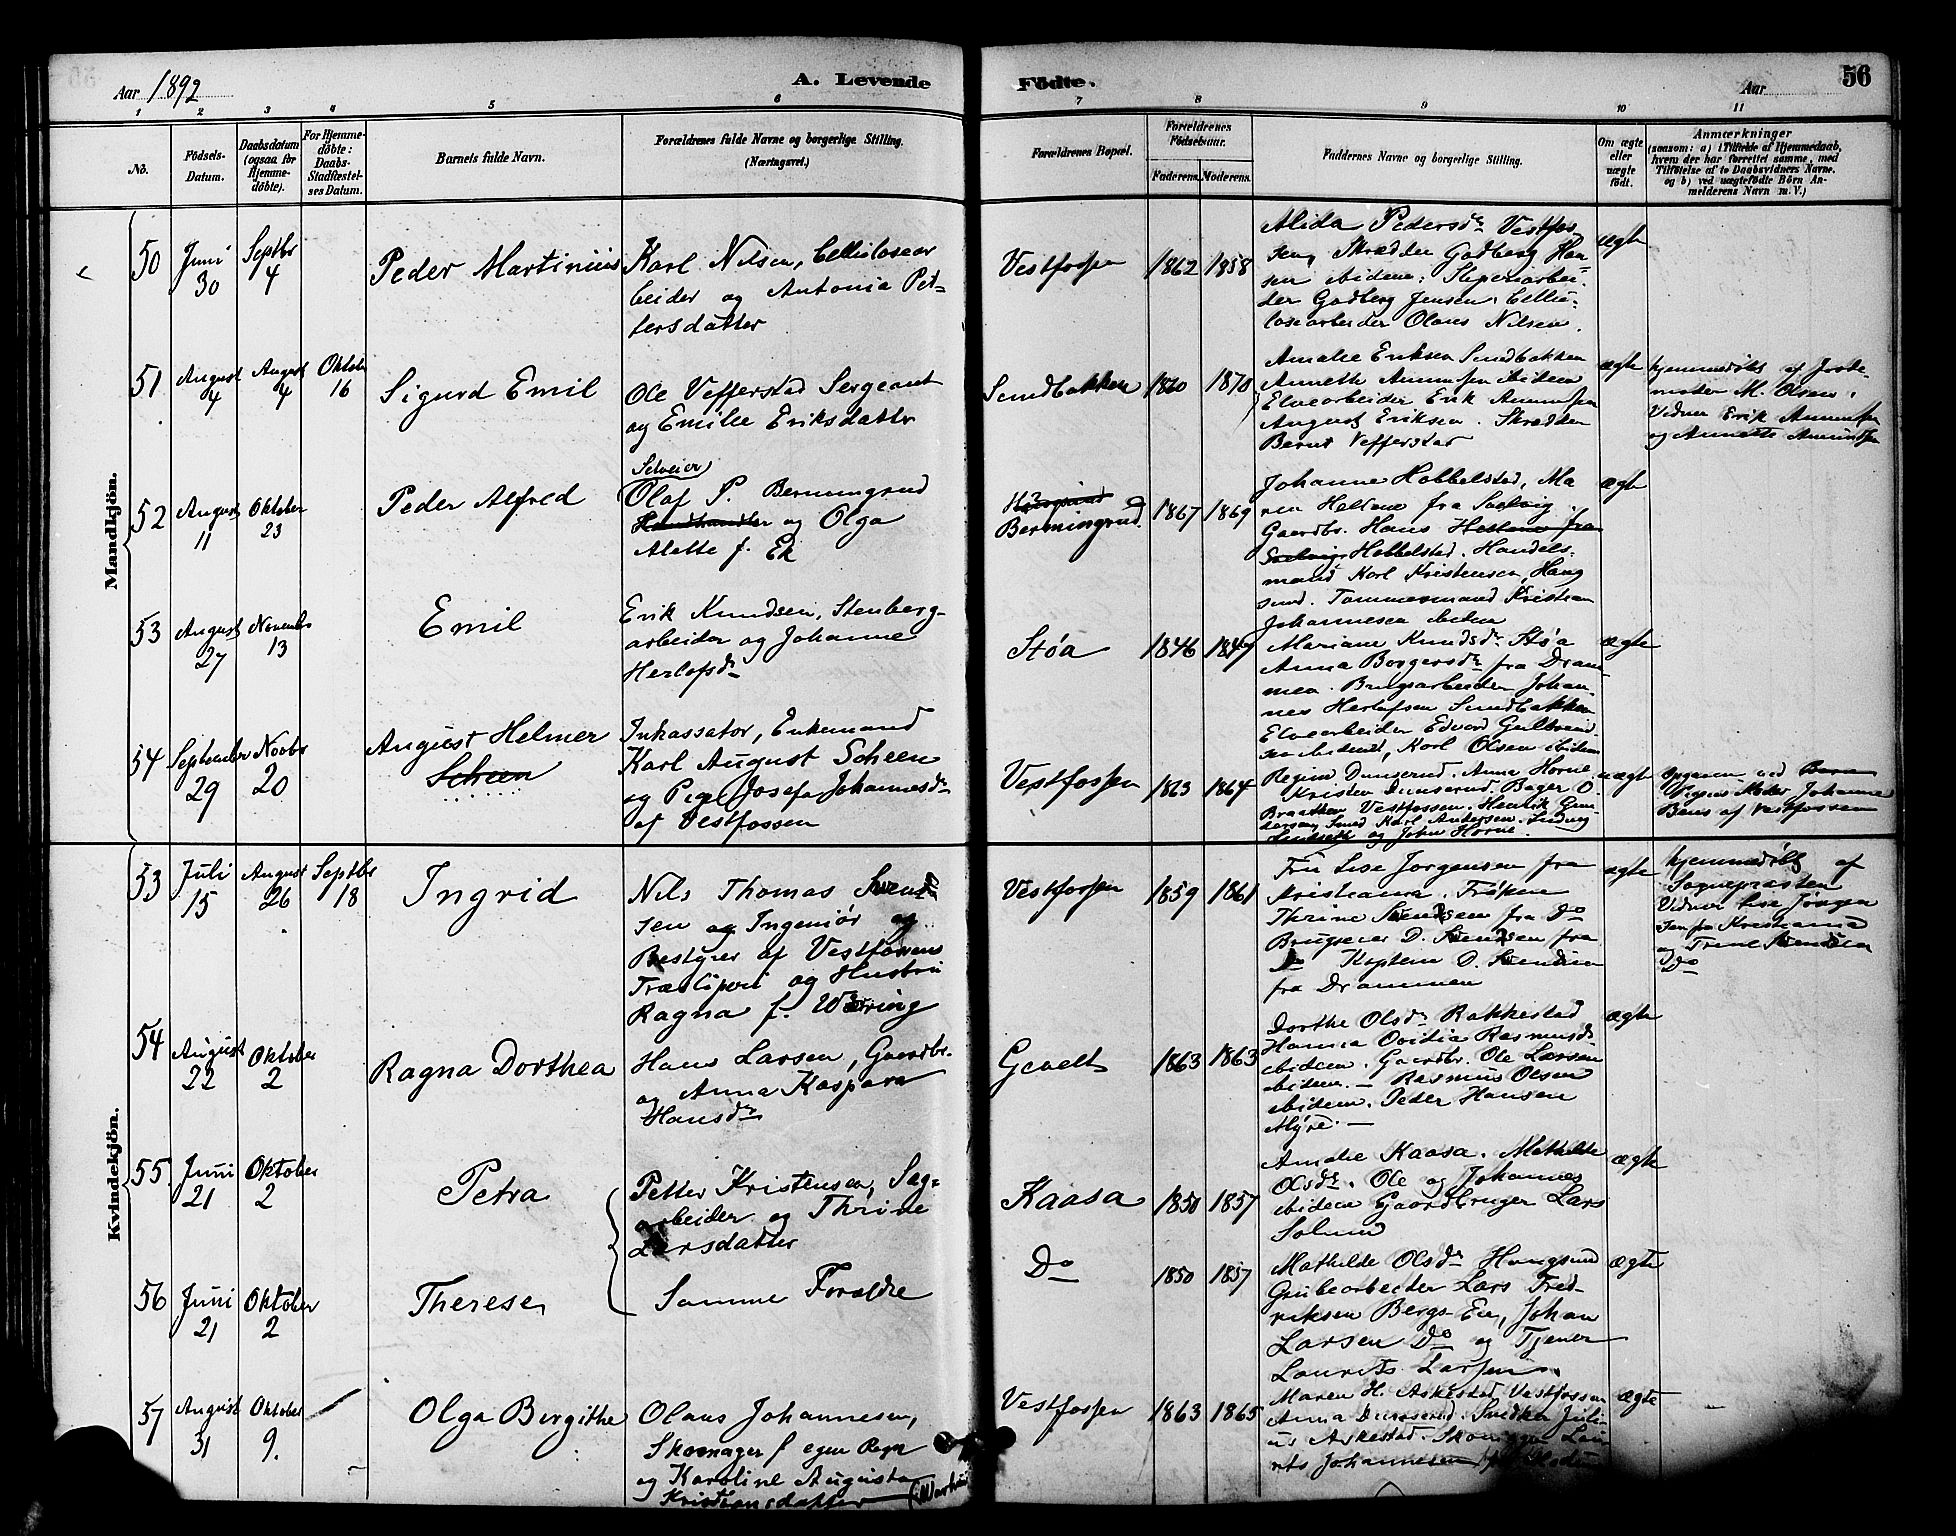 Aar 1892
A. Levende
Födte.
Aar
56
1 2 3 4 5 6 7 8 9 10 11
No.
Födsels-Datum.
Daabsdatum (ogsaa for Hjemmedöbte).
For Hjemmedöbte: Daabs-Stadfæstelses Datum.
Barnets fulde Navn.
Forældrenes fulde Navne og borgerlige Stilling. (Næringsvei.)
Forældrenes Bopæl.
Forældrenes Födselsaar.
Faderens. Moderens.
Faddernes Navne og borgerlige Stilling.
Om ægte eller uægte födt.
Anmærkninger
(saasom: a) i Tilfælde af Hjemmedaab, hvem der har forrettet samme, med Tilföielse af to Daabsvidners Navne. og b) ved uægtefödte Börn Anmelderens Navn m. V.)
Mandkjön.
50
Juni 30
Septbr 4
Peder Martinius
Karl Nilsen, Cellulosear
beider og Antonia Pet-
tersdatter
Vestfossen
1862 1858
Alida Pedersdr Vestfos-
sen, Skrædder Gudberg Han
sen ibidem; Sliperiarbei-
der Gudberg Jensen. Cellu-
losearbeider Olaus Nilsen.
ægte
51
August 4
August 4
Oktober 16
Sigurd Emil
Ole Vefferstad Sergeant
og Emilie Eriksdatter
Sundbakken
1870
Amalie Eriksen Sundbakken
Annethe Amundsen ibidem
Elvearbeider Erik Amundsen
August Eriksen. Skrædder
Bernt Vefferstad
ægte
hjemmedöbt af Jorde-
moder M. Olsen.
Vidner Erik Amundsen
og Annette Amundsen
52
August 11
Oktober 23
Peder Alfred
Selveier
Olaf P. Bermingrud
Landhandler og Olga
Alette f. Ek
Bermingrud
1867 1869
Johanne Hobbelstad, Ma
ren Hellum fra Solvig.
Gaardbr. Hans Hellum fra
Solvig Hobbelstad. Handels-
mand Karl Kristensen, Houg
sund. Tømmermand Kristian
Johannesen ibidem
ægte
53
August 27
November 13
Emil
Erik Knudsen, Stenberg-
arbeider og Johanne
Herlofsdr
Støa
1846 1849
Mariane Knudsdr Støa
Anna Borgersdr fra Dram-
men. Brugsarbeider Johan-
nes Herlofsen Sundbakken
Elvearbeider Edvard Gulbrand-
sen ibidem, Karl Olsen ibidem
ægte
54
September 29
Novbr 20
August Helmer
Scheen
Inkassator, Enkemand
Karl August Scheen
og Pige Josefa Johannesdr
af Vestfossen
Vestfossen
1863 1864
Regine Dunserud. Anna Horne
Kristen Dunserud. Bager O.
Braathen Vestfossen. Henrik Gun
dersen, Smed Karl Andersen. Ludvig
og John Horne.
uægte
Opgaven ved
Pigens Moder Johanne
Bens af Vestfossen
Kvindekjön.
53
Juli 15
August 26
Septbr 18
Ingrid
Nils Thomas Svend-
sen og Ingeniør og
Bestyrer af Vestfossens
Træsliperi og Hustru
Ragna f. Wæring
Vestfossen
1859 1861
Fru Lise Jørgensen fra
Kristiania. Frøken
Thrine Svendsen fra Do
Brugseier D. Svendsen fra
Do Kaptein D. Svendsen
fra Drammen
ægte
hjemmedöbt af
Sognepræsten
Vidner Lise Jörgen
sen fra Kristiania
og Trine Svendsen
Do
54
August 22
Oktober 2
Ragna Dorthea
Hans Larsen, Gaardbr.
og Anna Kaspara
Hansdr
Gevelt
1863 1863
Dorthe Olsdr Rakkestad
Hanna Ovidia Rasmusdr
ibidem. Gaardbr. Ole Larsen
ibidem. — Rasmus Olsen
ibidem. Peder Hansen
Myre. —
ægte
55
Juni 21
Oktober 2
Petra
Petter Kristensen, Sag-
arbeider og Thrine
Larsdatter
Kaasa
1850 1857
Amalie Kaasa. Mathilde
Olsdr. Ole og Johannes
ibidem Gaardbruger Lars
Solum
ægte
56
Juni 21
Oktober 2
Therese
Samme Foraldre
Do
1850 1857
Mathilde Olsdr Hougsund
Grubearbeider Lars Fred-
riksen Bergs-Eie, Johan
Larsen Do og Tjener
Laurits Larsen.
ægte
57
August 31
Oktober 9.
Olga Birgithe
Olaus Johannesen,
Skomager f egen Regn
og Karoline Augusta
Kristiansdatter
Vestfossen
1863 1865
Maren H. Askestad Vestfossen
Anna Dunserud. Snedker Juli-
us Askestad. Skomager Lau
rits Johannesen
ægte